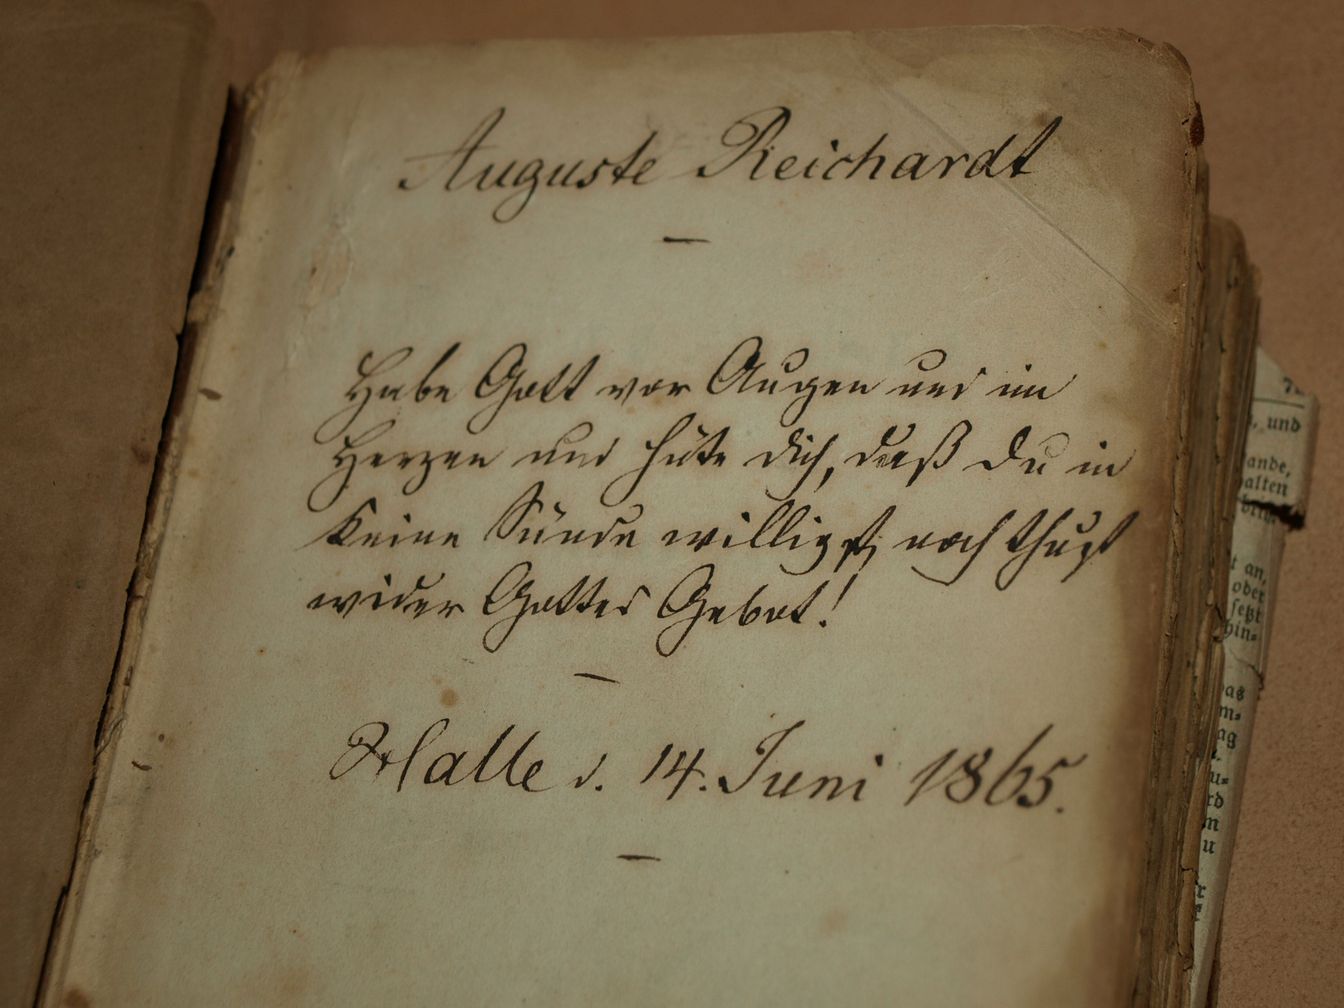 Auguste Reichardt
Habe Gott vor Augen und im
Herzen und hüte dich, daß du in
keine Sünde willigst, noch thust
wider Gottes Gebot!
Halle d. 14. Juni 1865.
und
ande,
alten
t an,
oder
setzt
hin=
as
m=
ag
u=
rd
m
u